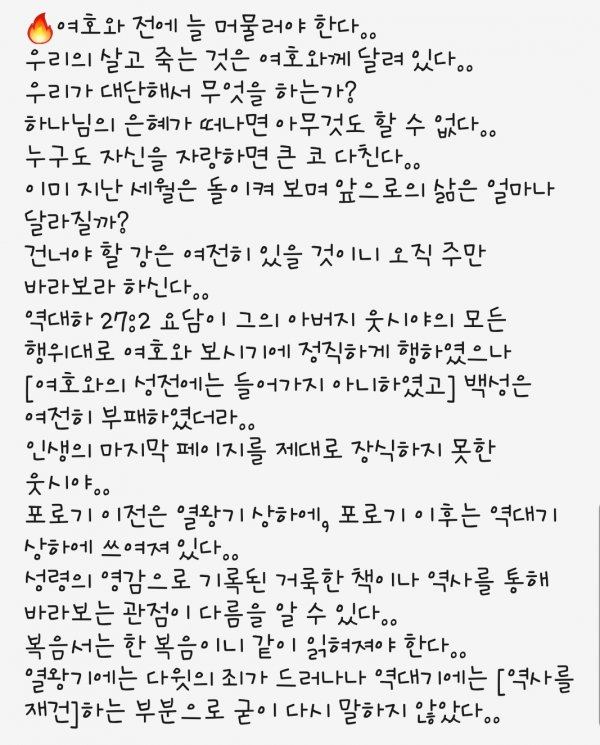 🔥여호와 전에 늘 머물러야 한다..
우리의 살고 죽는 것은 여호와께 달려 있다..
우리가 대단해서 무엇을 하는가?
하나님의 은혜가 떠나면 아무것도 할 수 없다..
누구도 자신을 자랑하면 큰 코 다친다..
이미 지난 세월은 돌이켜 보며 앞으로의 삶은 얼마나
달라질까?
건너야 할 강은 여전히 있을 것이니 오직 주만
바라보라 하신다..
역대하 27:2 요담이 그의 아버지 웃시야의 모든
행위대로 여호와 보시기에 정직하게 행하였으나
[여호와의 성전에는 들어가지 아니하였고] 백성은
여전히 부패하였더라..
인생의 마지막 페이지를 제대로 장식하지 못한
웃시야..
포로기 이전은 열왕기 상하에, 포로기 이후는 역대기
상하에 쓰여져 있다..
성령의 영감으로 기록된 거룩한 책이나 역사를 통해
바라보는 관점이 다름을 알 수 있다..
복음서는 한 복음이니 같이 읽혀져야 한다..
열왕기에는 다윗의 죄가 드러나나 역대기에는 [역사를
재건]하는 부분으로 굳이 다시 말하지 않았다..